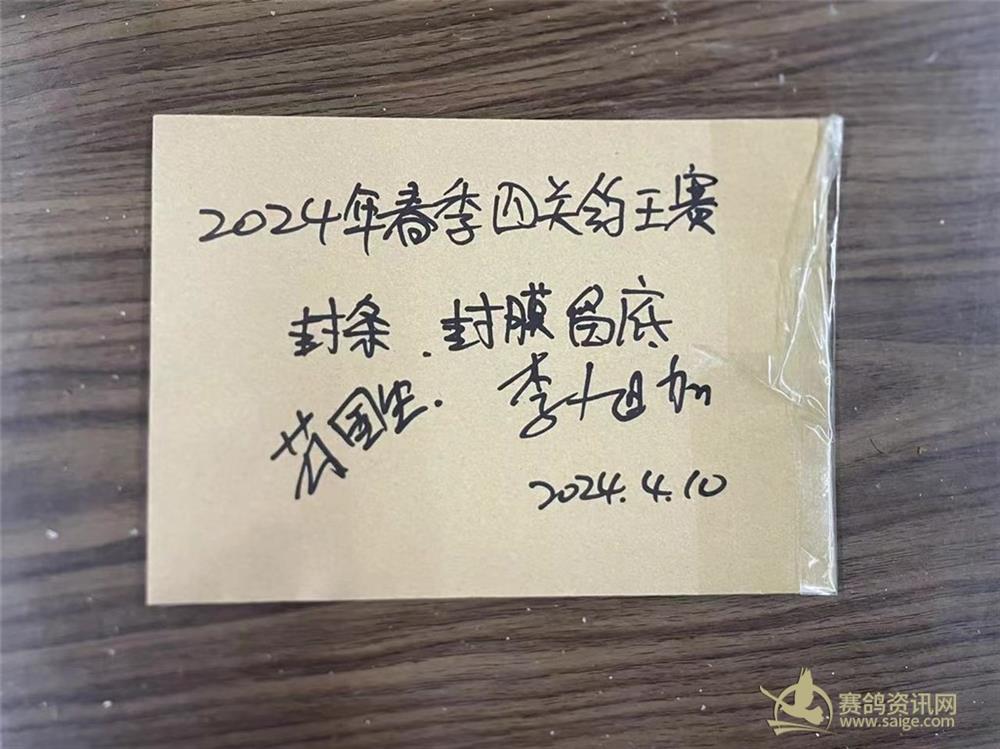 2024年春季四关鸽王赛
封条.封膜留底
国生. 李
2024.4.10
赛鸽资讯网
www.saige.com